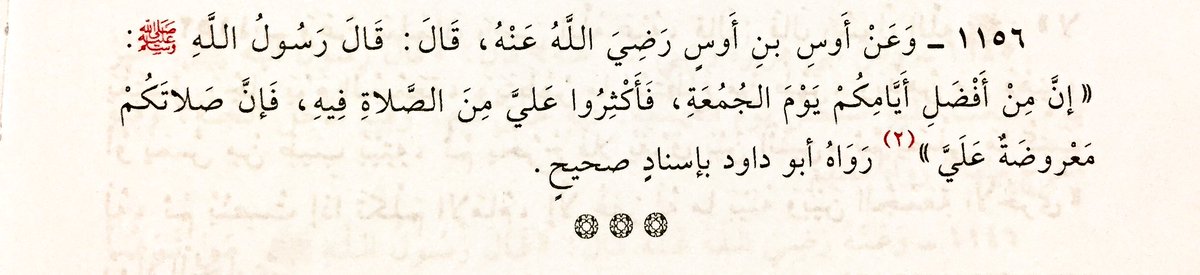 ١١٥٦ ـ وَعَنْ أَوسِ بنِ أَوسٍ رَضِيَ اللَّهُ عَنْهُ، قَالَ: قَالَ رَسُولُ اللَّهِ ﷺ:
«إنَّ مِنْ أَفْضَلِ أَيَّامِكُمْ يَوْمَ الجُمُعَةِ، فَأَكْثِرُوا عَليَّ مِنَ الصَّلاةِ فِيهِ، فَإنَّ صَلاتَكُمْ
مَعْروضَةٌ عَلَيَّ»(٢) رَوَاهُ أبو داود بإسنادٍ صحيحٍ.